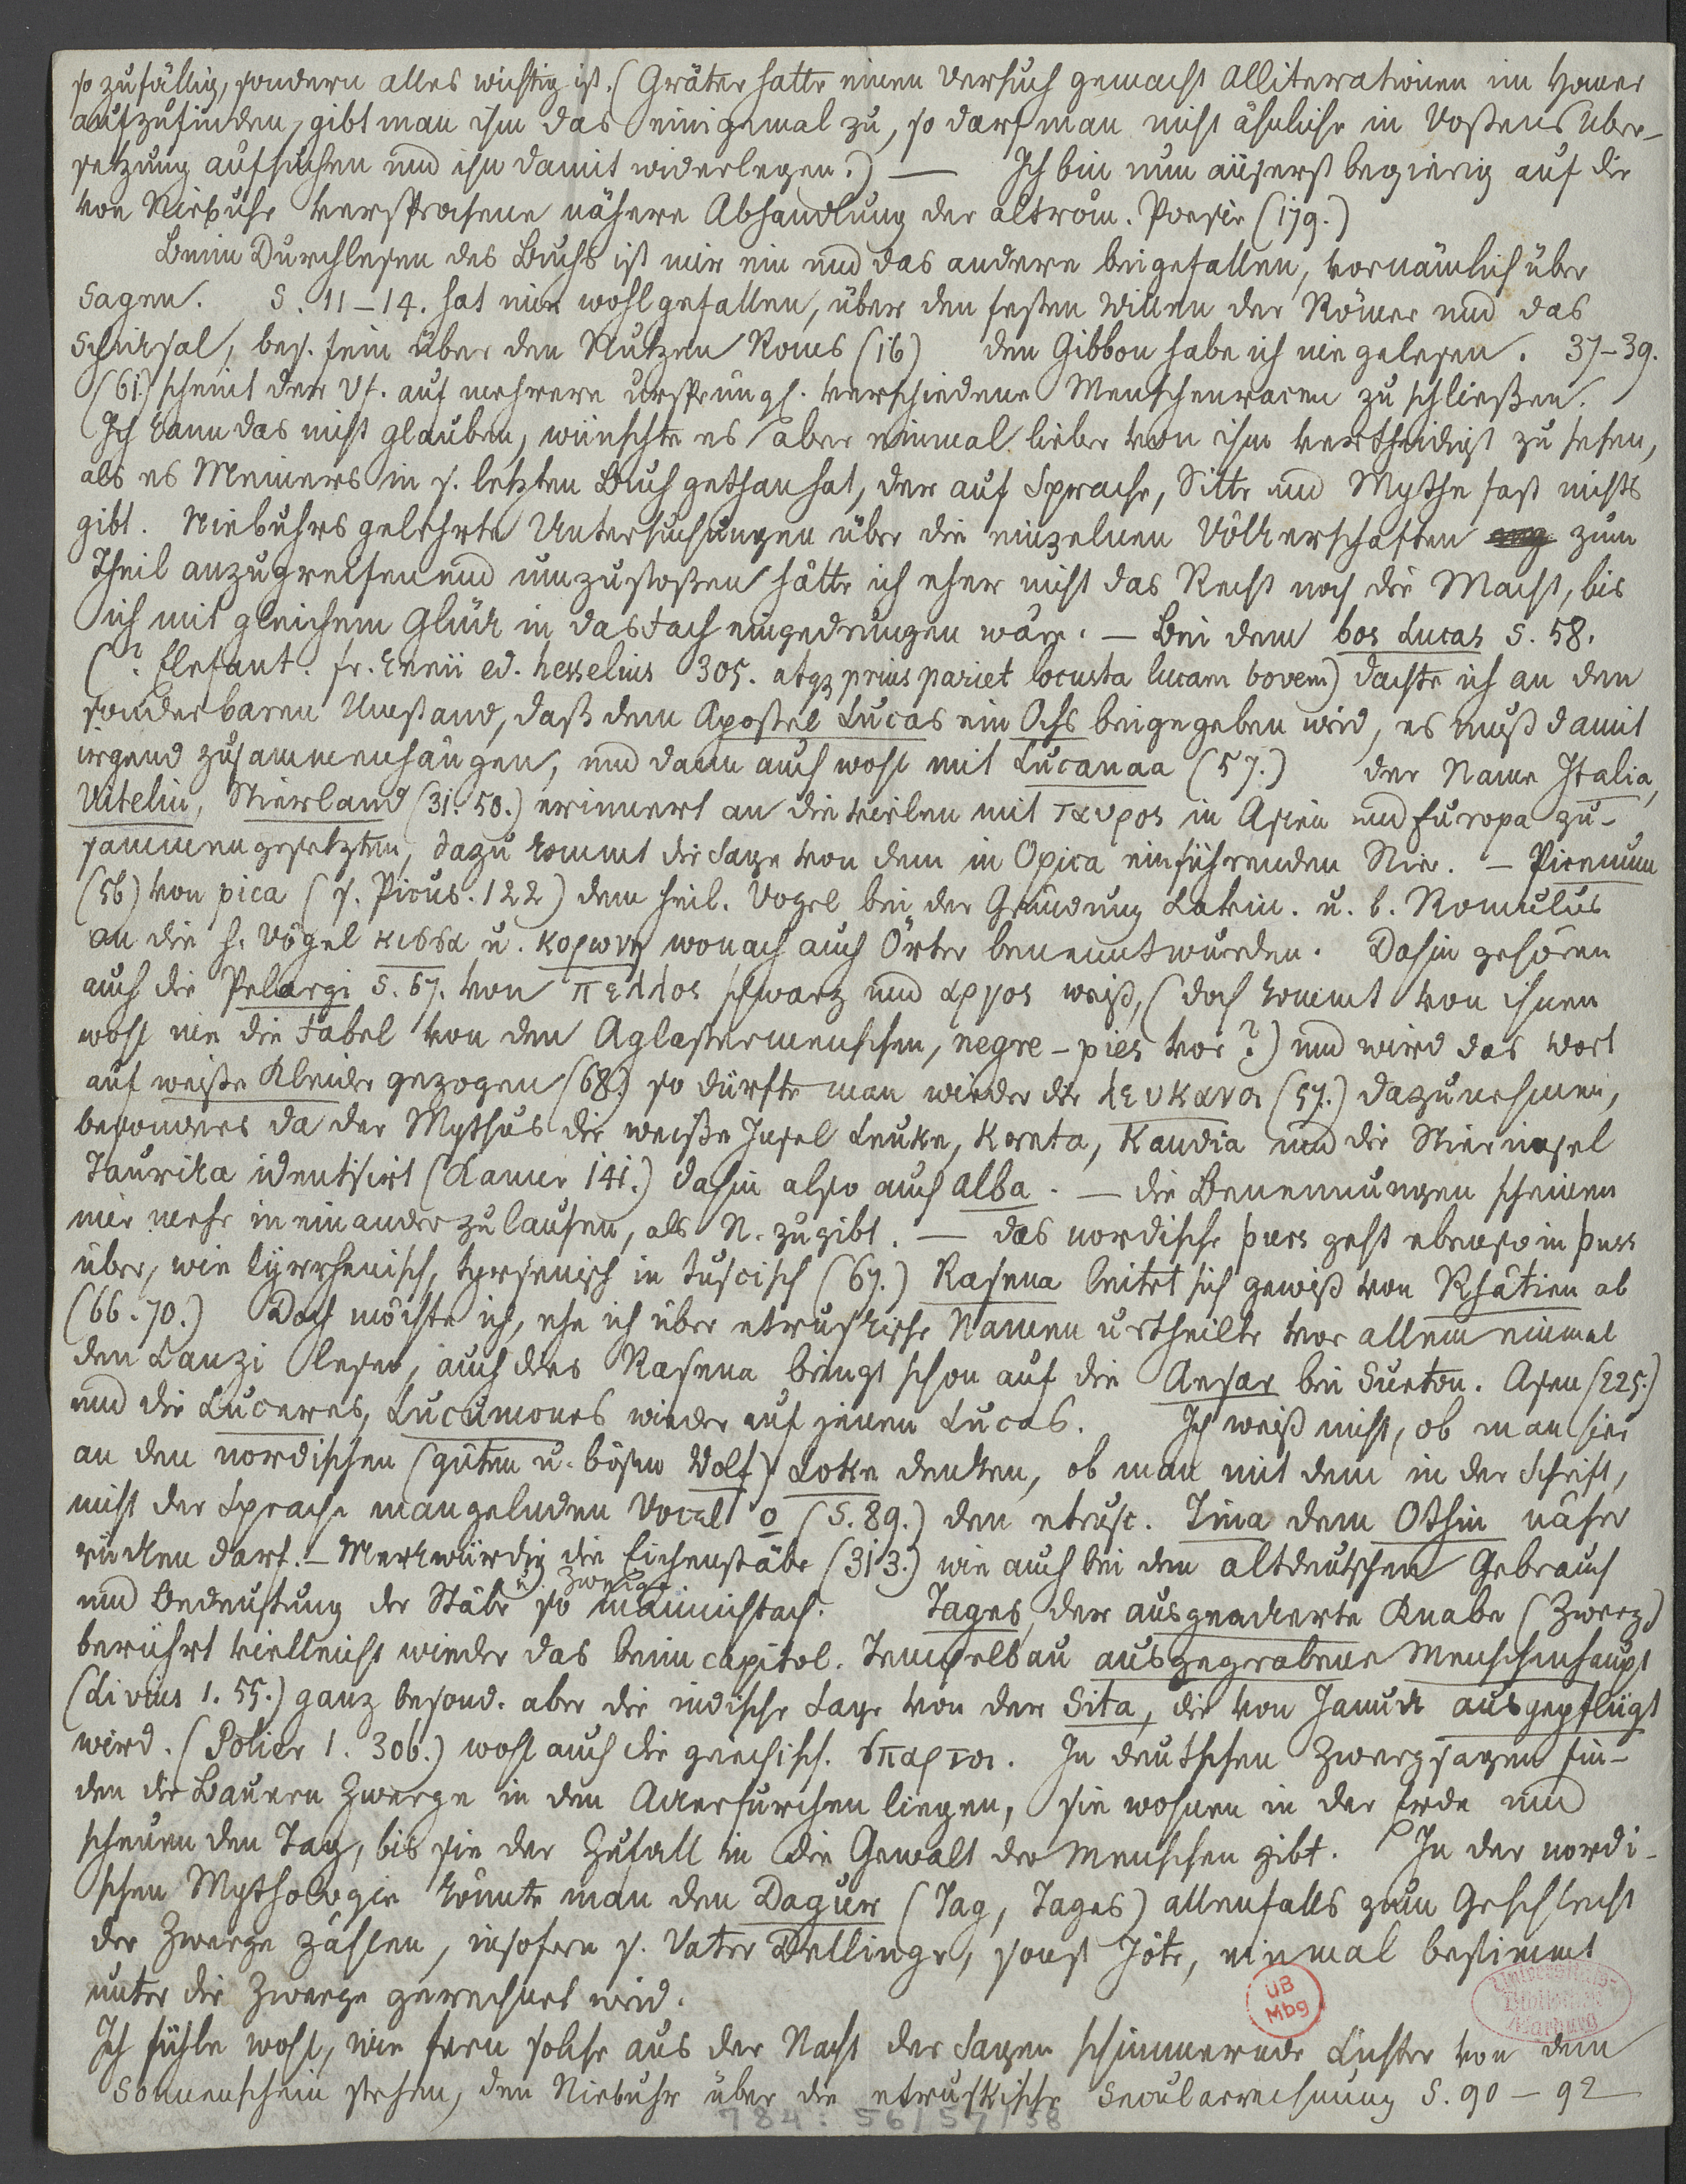 so zufällig, sondern alles wichtig ist. (Gräter hatte einen Versuch gemacht Alliterationen im Homer
aufzufinden, gibt man ihm das einigemal zu, so darf man nicht ähnliche in Voßens Uber-
setzung aufsuchen und ihn damit widerlegen.) — Ich bin nun äußerst begierig auf die
von Niebuhr versprochene nähere Abhandlung der altröm. Poesie (179.)
Beim Durchlesen des Buchs ist mir ein und das andere beigefallen, vornämlich über
Sagen. S. 11–14. hat mir wohl gefallen, über den festen Willen der Römer und das
Schicksal, bes. fein über den Nutzen Roms (16) den Gibbon habe ich nie gelesen. 37–39.
(61.) scheint der Vf. auf mehrere ursprüngl. verschiedene Menschenracen zu schließen.
Ich kann das nicht glauben, wünschte es aber einmal lieber von ihm vertheidigt zu sehen,
als es Meiners in s. letzten Buch gethan hat, der auf Sprache, Sitte und Mythe fast nichts
gibt. Niebuhrs gelehrte Untersuchungen über die einzelnen Völkerschaften zum
Theil anzugreifen und umzustoßen hätte ich eher nicht das Recht noch die Macht, bis
ich mit gleichem Glück in das Fach eingedrungen wäre. — Bei dem bos Lucas S. 58.
(? Elefant. fr. Ennii ed. hesselius 305. atqz prius pariet locusta lucam bovem) dachte ich an den
sonderbaren Umstand, daß dem Apostel Lucas ein Ochs beigegeben wird, es muß damit
irgend zusammenhängen, und dann auch wohl mit Lucanaa (57.) der Name Italia,
Vitelin, Stierland (31. 50.) erinnert an die vielen mit ταυρος in Asien und Europa zu-
sammengesetzten, dazu kommt die Sage von dem in Opica einführenden Stier. — Picenum
(56) von pica (s. Picus. 122) dem heil. Vogel bei der Gründung Latein. u. b. Romulus
an die h. Vögel κισσα u. κορωνη wonach auch Örter benennt wurden. Dahin gehören
auch die Pelargi S. 67. von πελλος schwarz und αργος weiß, (doch kommt von ihnen
wohl nie die Fabel von den Aglastermenschen, negre-pies vor?) und wird das Wort
auf weiße Kleider gezogen (68.) so dürfte man wieder die λευκανοι (57.) dazunehmen,
besonders da der Mythus die weiße Insel Leuke, Kreta, Kandia und die Stierinsel
Taurika identisirt (Kanne 141.) dahin also auch alba. — die Benennungen scheinen
mir mehr in einander zu laufen, als N. zugibt. — das nordische þurs geht ebenso in þuss
über, wie tyrrhenisch, tyrsenisch in tuscisch (67.) Rasena leitet sich gewiß von Rhätien ab
(66. 70.) Doch möchte ich, ehe ich über etruskische Namen urtheilte vor allem einmal
den Lanzi lesen, auch dies Rasena bringt schon auf die Aesar bei Sueton. Asen (225.)
und die Luceres, Lucumones wieder auf jenen Lucas. Ich weiß nicht, ob man hier
an den nordischen (guten u. bösen Wolf) Loke denken, ob man mit dem in der Schrift,
nicht der Sprache mangelnden Vocal o (S. 89.) den etrusc. Tina dem Othin näher
rücken darf. — Merkwürdig die Eichenstäbe (313.) wie auch bei den altdeutschen Gebrauch
und Bedeutung der Stäbe u. Zweige so mannichfach. Tages, der ausgeackerte Knabe (Zwerg)
berührt vielleicht wieder das beim capitol. Tempelbau ausgegrabene Menschenhaupt
(Livius 1. 55.) ganz besond. aber die indische Sage von der Sita, die von Januck ausgepflügt
wird. (Polier 1. 306.) wohl auch die griechisch. σπαρτοι. In deutschen Zwergsagen fin-
den die Bauern Zwerge in den Ackerfurchen liegen, sie wohnen in der Erde und
scheuen den Tag, bis sie der Zufall in die Gewalt der Menschen gibt. In der nordi-
schen Mythologie könnte man den Dagur (Tag, Tages) allenfalls zum Geschlecht
der Zwerge zählen, insofern s. Vater Dellingr, sonst Jöte, einmal bestimmt
unter die Zwerge gerechnet wird.
UB Mbg
Universitäts-Bibliothek Marburg
Ich fühle wohl, wie fern solche aus der Nacht der Sagen schimmernde Lichter von dem
Sonnenschein stehen, den Niebuhr über die etruskische Secularrechnung S. 90–92
784: 56/57/58